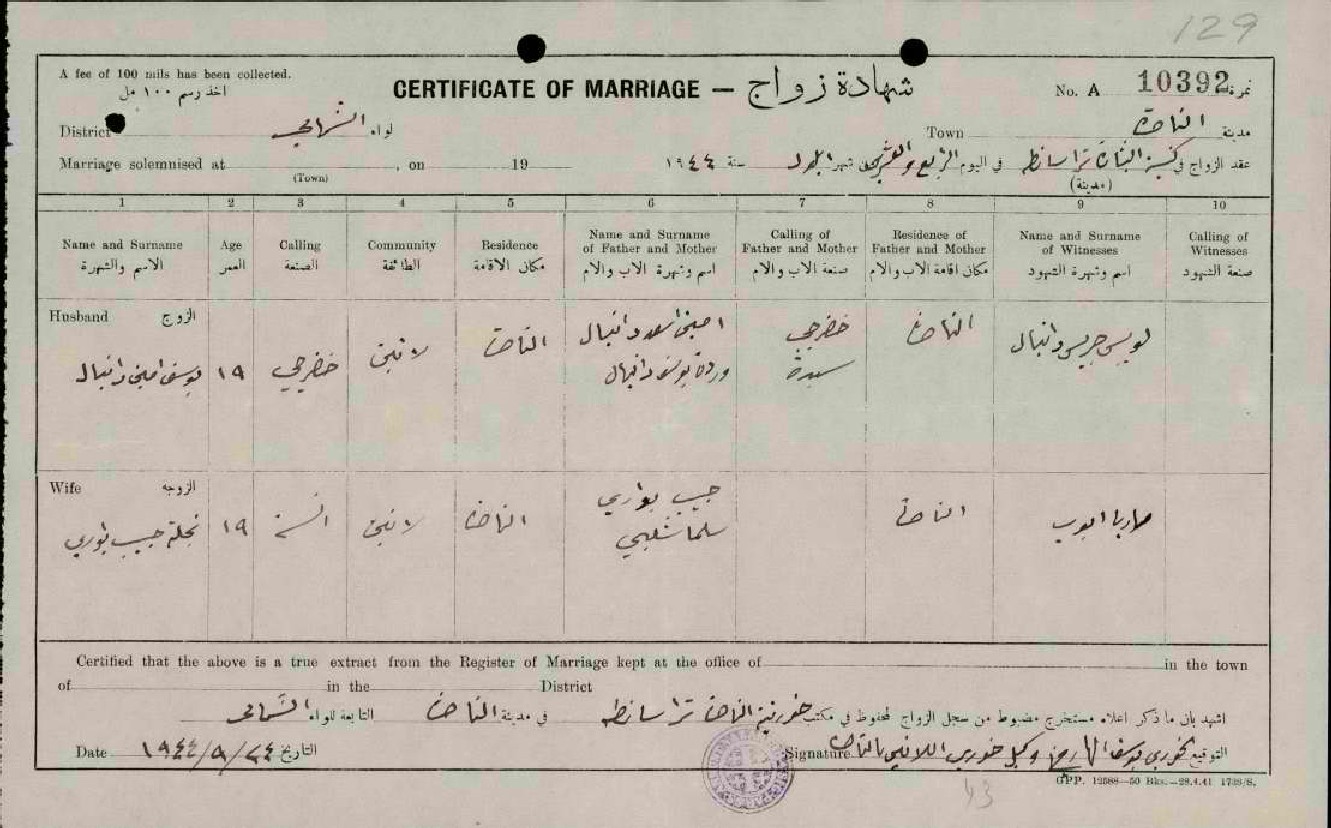 129
A fee of 100 mils has been collected.
اخذ رسم ١٠٠ مل
CERTIFICATE OF MARRIAGE — شهادة زواج
No. A 10392 نمرة
District الشمالي لواء
Town الناصرة مدينة
Marriage solemnised at , on 19
(Town)
عقد الزواج في تراسانطه في اليوم الرابع والعشرين شهر سنة ١٩٤٤
(مدينة)
1 2 3 4 5 6 7 8 9 10
Name and Surname الاسم والشهرة
Age العمر
Calling الصنعة
Community الطائفة
Residence مكان الاقامة
Name and Surname of Father and Mother اسم وشهرة الاب والام
Calling of Father and Mother صنعة الاب والام
Residence of Father and Mother مكان اقامة الاب والام
Name and Surname of Witnesses اسم وشهرة الشهود
Calling of Witnesses صنعة الشهود
Husband الزوج
يوسف امين دانيال
١٩
خضرجي
لاتين
الناصرة
امين اسعد دانيال
وردة يوسف دانيال
خضرجي
سيدة
الناصرة
لويس جريس دانيال
Wife الزوجه
نجلة حبيب بواري
١٩
آنسة
لاتين
الناصرة
حبيب بواري
سلما شلبي
الناصرة
ماريا ايوب
Certified that the above is a true extract from the Register of Marriage kept at the office of in the town
of in the District
اشهد بان ما ذكر اعلاه مستخرج مضبوط من سجل الزواج المحفوظ في مكتب خورنية الناصرة تراسانطه في مدينة الناصرة التابعة للواء الشمالي
Date ١٩٤٤/٩/٢٤ التاريخ
Signature الخوري يوسف وكيل خوري اللاتين بالناصرة التوقيع
GPP. 12588—50 Bks.—28.4.41 1738/S.
43